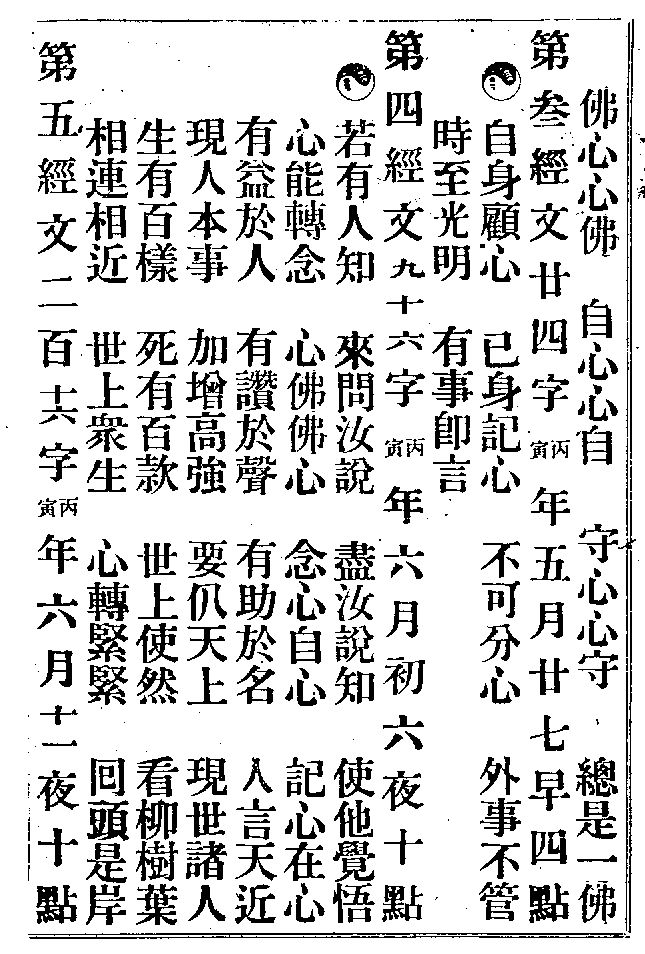 佛心心佛　自心心自　守心心守　總是一佛
第叁經文廿四字丙寅年五月廿七早四點
自身顧心　己身記心　不可分心　外事不管
時至光明　有事即言
第四經文九十六字丙寅年六月初六夜十點
若有人知　來問汝說　盡汝說知　使他覺悟
心能轉念　心佛佛心　念心自心　記心在心
有益於人　有讚於聲　有助於名　人言天近
現人本事　加增高強　要伩天上　現世諸人
生有百樣　死有百款　世上使然　看柳樹葉
相連相近　世上衆生　心轉緊緊　囘頭是岸
第五經文二百十六字丙寅年六月十二夜十點